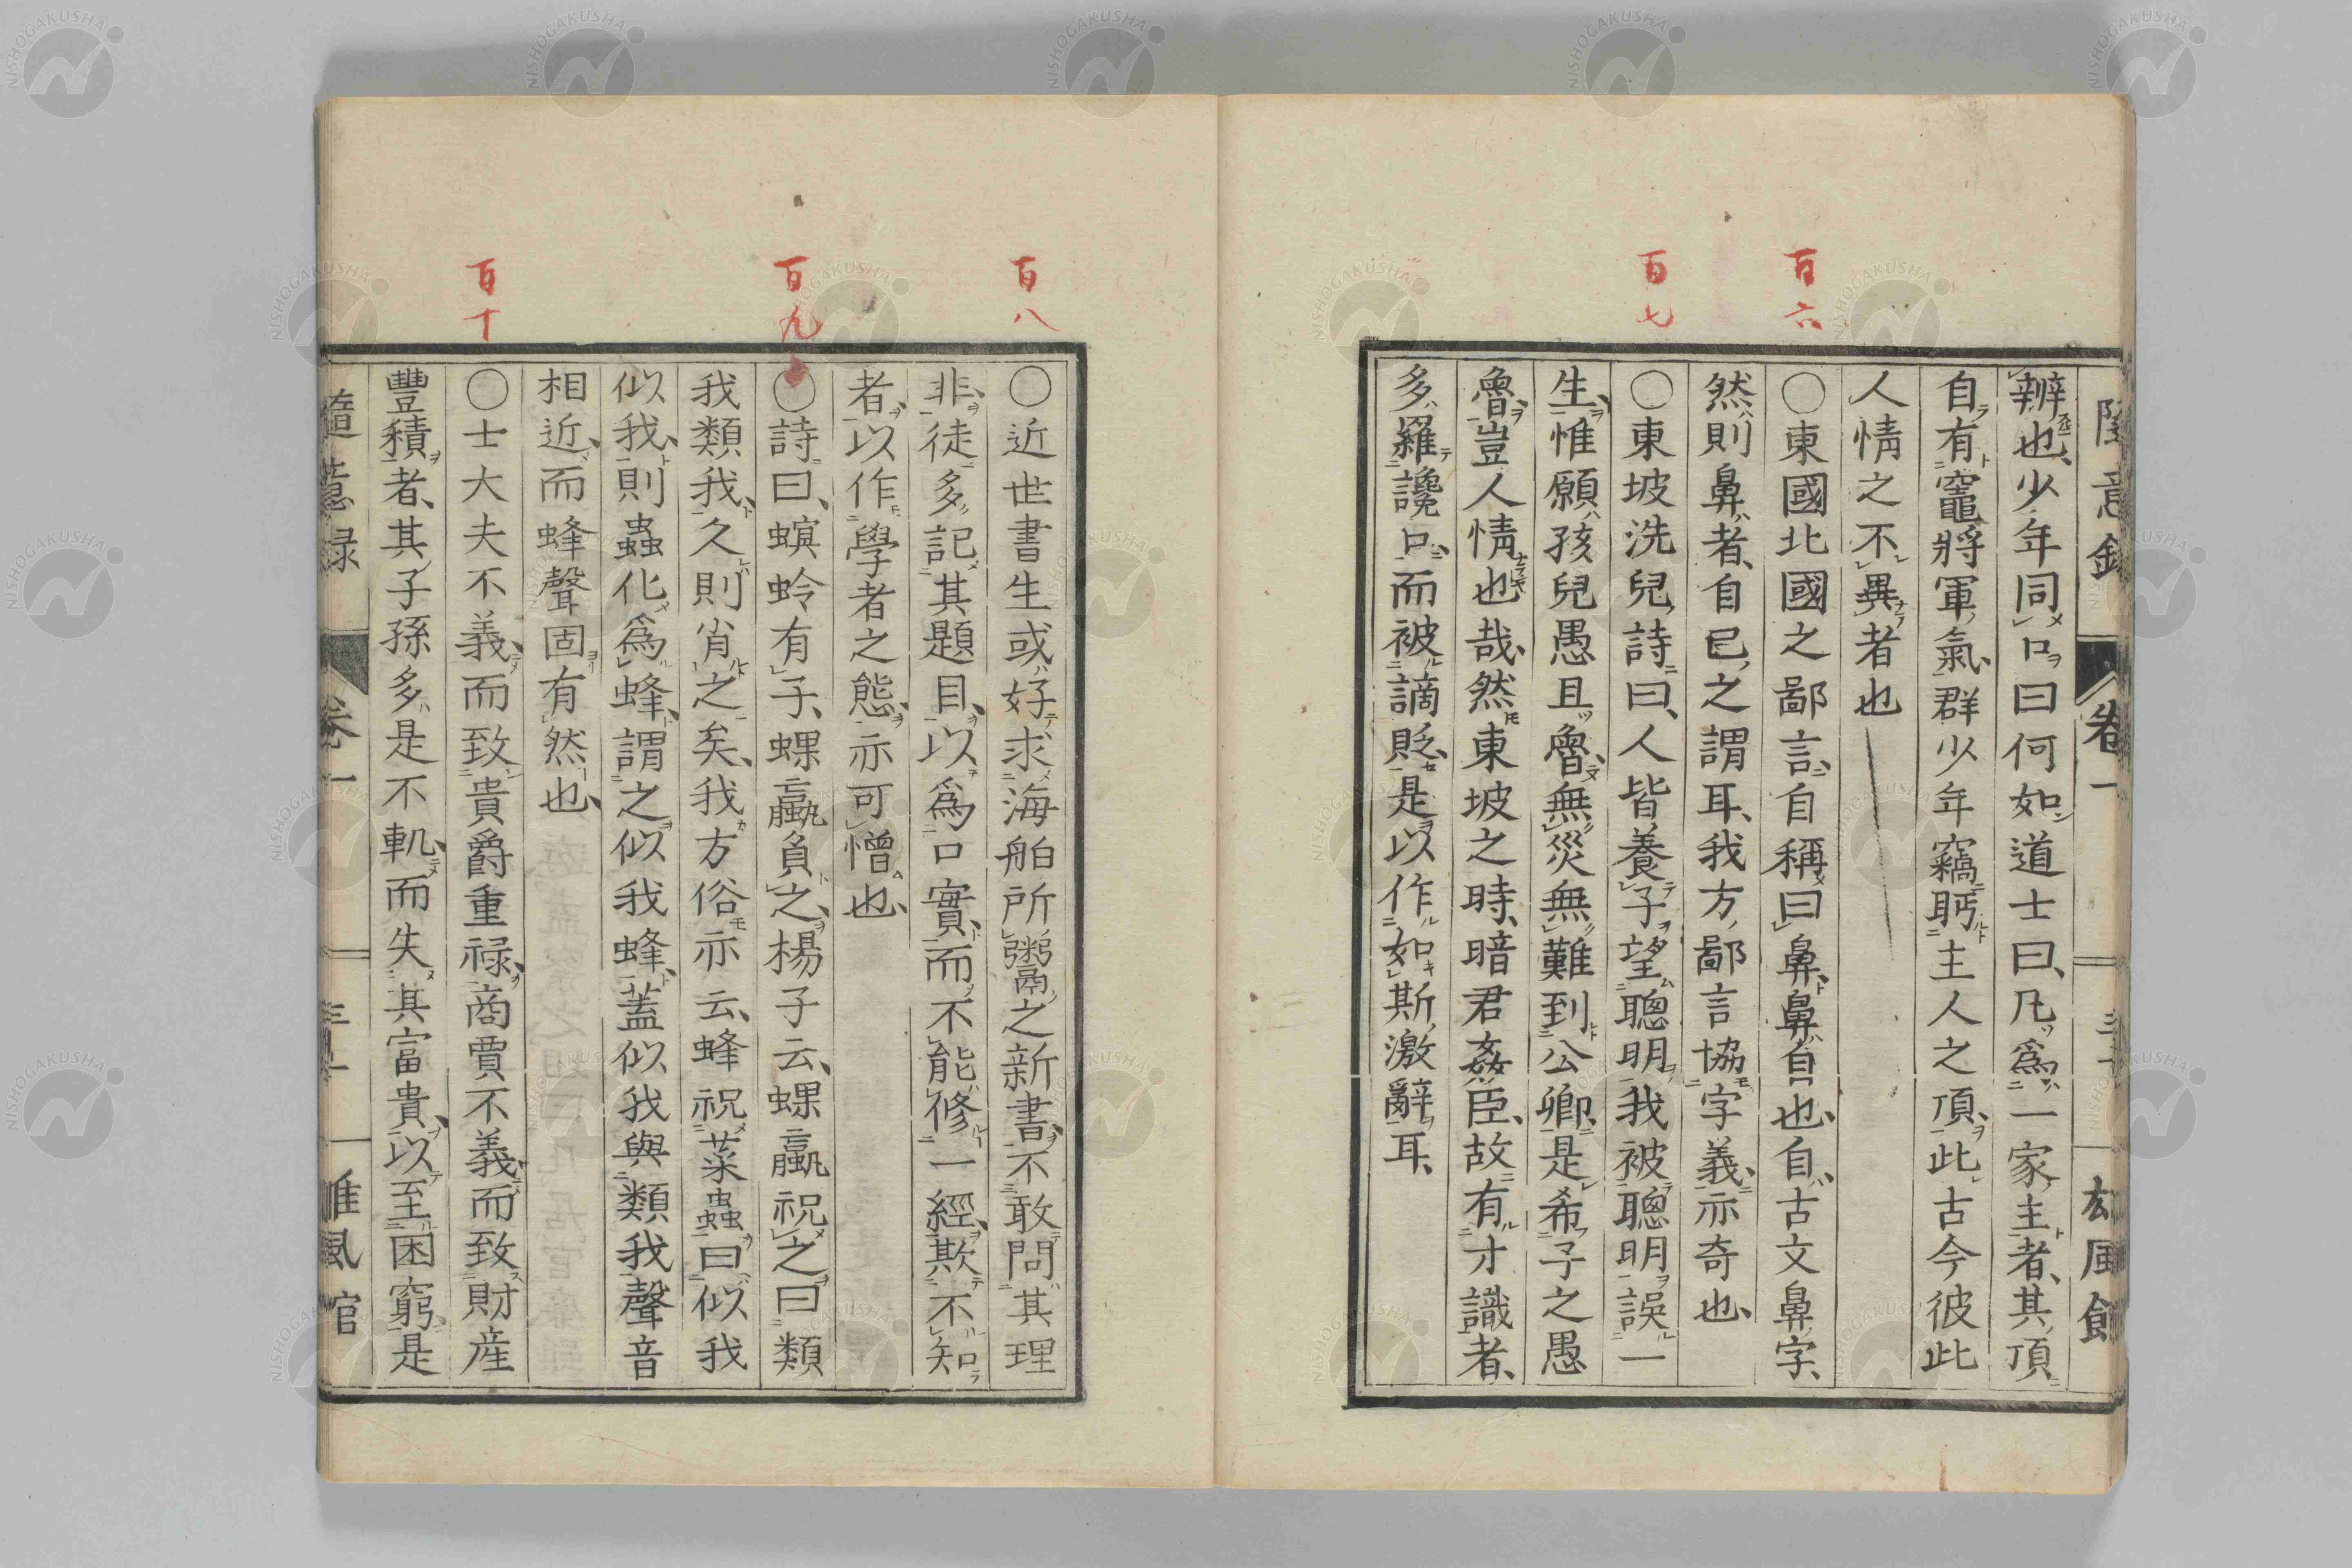 百六
百七
辨也、少年同口曰何如道士曰、凡爲一家主者、其頂
自有竈將軍氣、群少年竊眄主人之頂、此古今彼此
人情之不異者也
〇東國北國之鄙言、自稱曰鼻、鼻自也、自、古文鼻字、
然則鼻者、自己之謂耳、我方鄙言協字義、亦奇也、
〇東坡洗兒詩曰、人皆養子望聰明我被聰明誤一
生、惟願孩兒愚且魯、無災無難到公卿、是希子之愚
魯、豈人情也哉、然東坡之時、暗君姦臣、故有才識者、
多羅讒口、而被謫貶、是以作如斯激辭耳、
百八
百九
百十
〇近世書生或好求海舶所鬻之新書、不敢問其理
非、徒多記其題目、以爲口實、而不能修一經、欺不知
者、以作學者之態、亦可憎也、
〇詩曰、螟蛉有子、蜾蠃負之、楊子云、蜾蠃祝之曰類
我類我、久則肖之矣、我方俗亦云、蜂祝菜蟲曰似我
似我、則蟲化爲蜂、謂之似我蜂、蓋似我與類我聲音
相近、而蜂聲固有然也、
〇士大夫不義、而致貴爵重祿、商賈不義、而致財産
豐積者、其子孫多是不軌、而失其富貴、以至困窮、是
隨意錄 卷一 雄風館
NISHOGAKUSHA